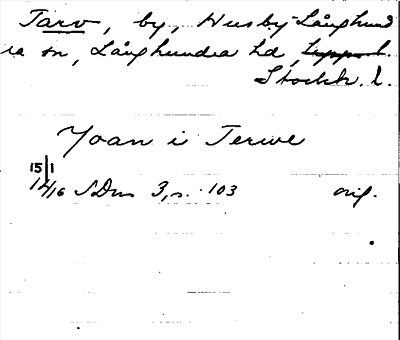 Tarv, by, Husby-Långhund
ra sn, Långhundra hd, Uppsal.
Stockh. l.
Yoan i Terwe
15/1
1416 SDns 3, s. 103 orig.